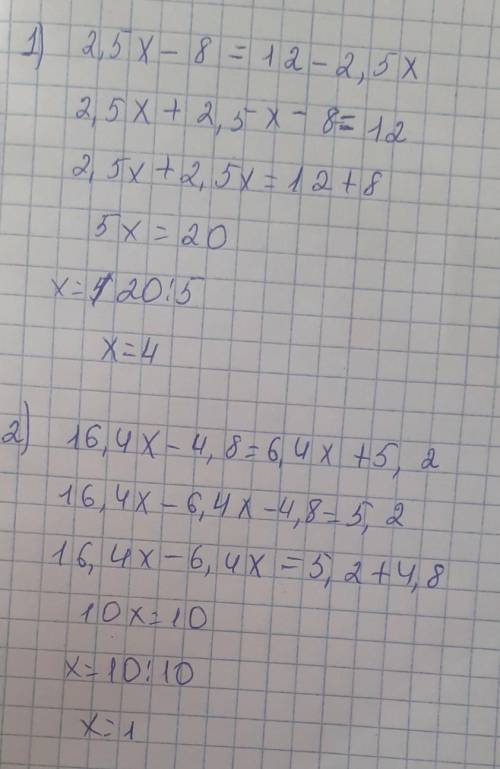 1) 2,5x - 8 = 12 - 2,5x
2,5x + 2,5x - 8 = 12
2,5x + 2,5x = 12 + 8
5x = 20
x = 20:5
x = 4
2) 16,4x - 4,8 = 6,4x + 5,2
16,4x - 6,4x - 4,8 = 5,2
16,4x - 6,4x = 5,2 + 4,8
10x = 10
x = 10:10
x = 1